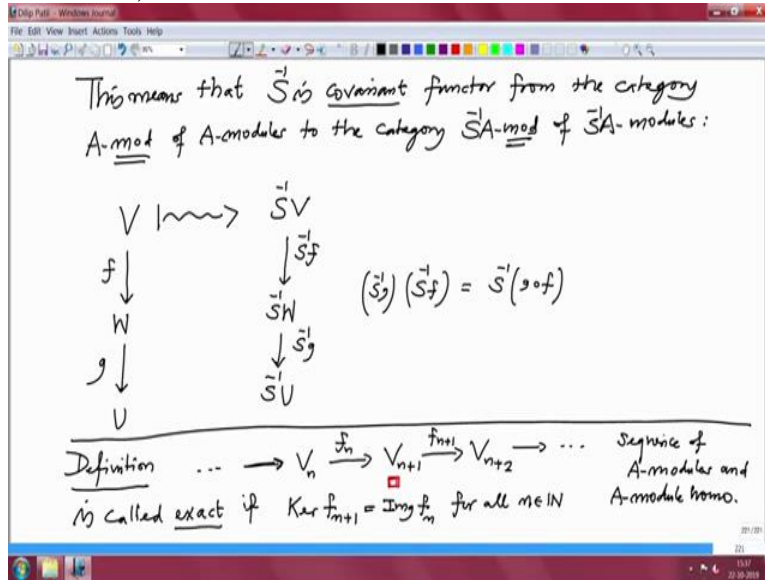 Dilip Patil - Windows Journal
File Edit View Insert Actions Tools Help
This means that S⁻¹ is covariant functor from the category
A-mod of A-modules to the category S⁻¹A-mod of S⁻¹A-modules:
V ⟼ S⁻¹V
f ↓ ↓ S⁻¹f
W S⁻¹W (S⁻¹g) (S⁻¹f) = S⁻¹(g∘f)
g ↓ ↓ S⁻¹g
U S⁻¹U
Definition ... → Vₙ —fₙ→ Vₙ₊₁ —fₙ₊₁→ Vₙ₊₂ → ... Sequence of
A-modules and
is called exact if Ker fₙ₊₁ = Img fₙ for all n∈ℕ A-module homo.
221/221
221
15:37
22-10-2019